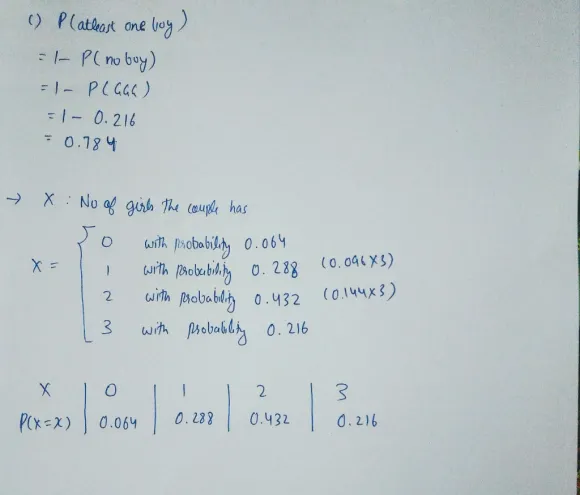 c) P(atleast one boy)
= 1 - P(no boy)
= 1 - P(GGG)
= 1 - 0.216
= 0.784
→ X : No of girls the couple has
X = { 0 with probability 0.064
1 with probability 0.288 (0.096x3)
2 with probability 0.432 (0.144x3)
3 with probability 0.216
X | 0 | 1 | 2 | 3
P(X=x) | 0.064 | 0.288 | 0.432 | 0.216